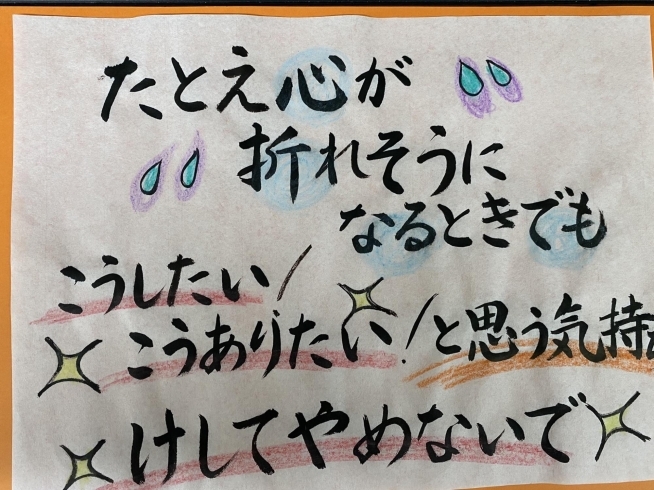 たとえ心が
折れそうに
なるときでも
こうしたい!
こうありたい!と思う気持
けしてやめないで